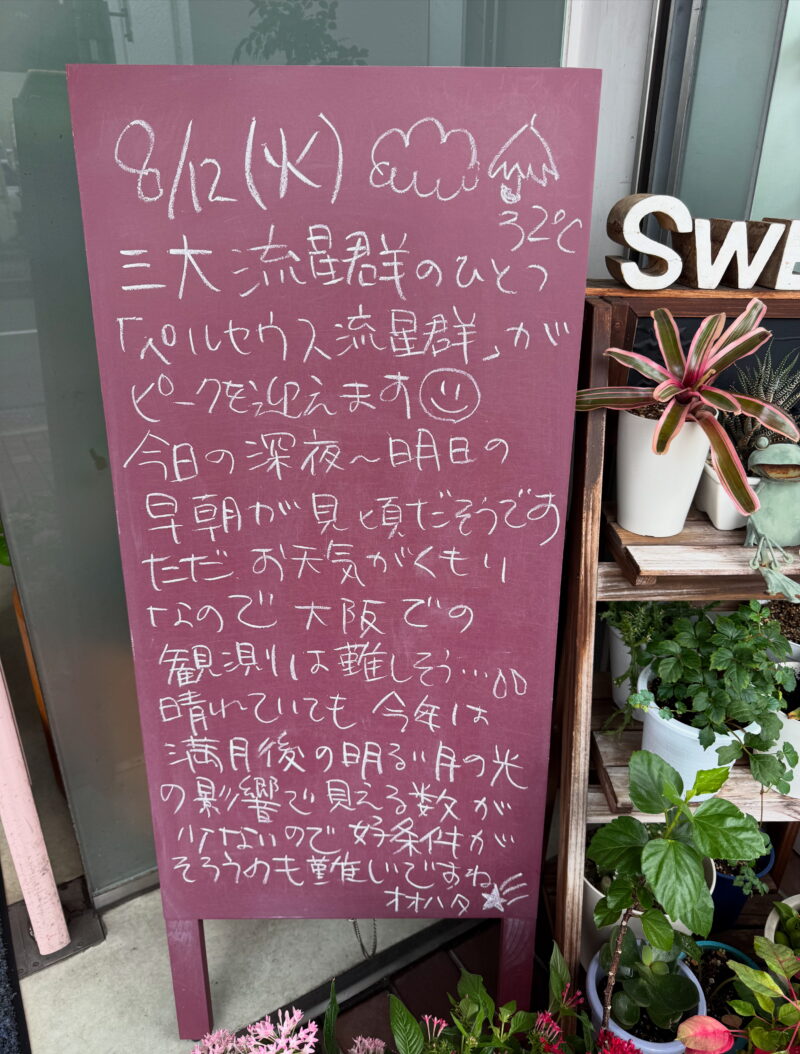 8/12(火)
32℃
三大流星群のひとつ
「ペルセウス流星群」が
ピークを迎えます
今日の深夜～明日の
早朝が見頃だそうです
ただ お天気がくもり
なので 大阪での
観測は難しそう…
晴れていても 今年は
満月後の明るい月の光
の影響で見える数が
少ないので 好条件が
そろうのも難しいですね
オオハタ
SWE